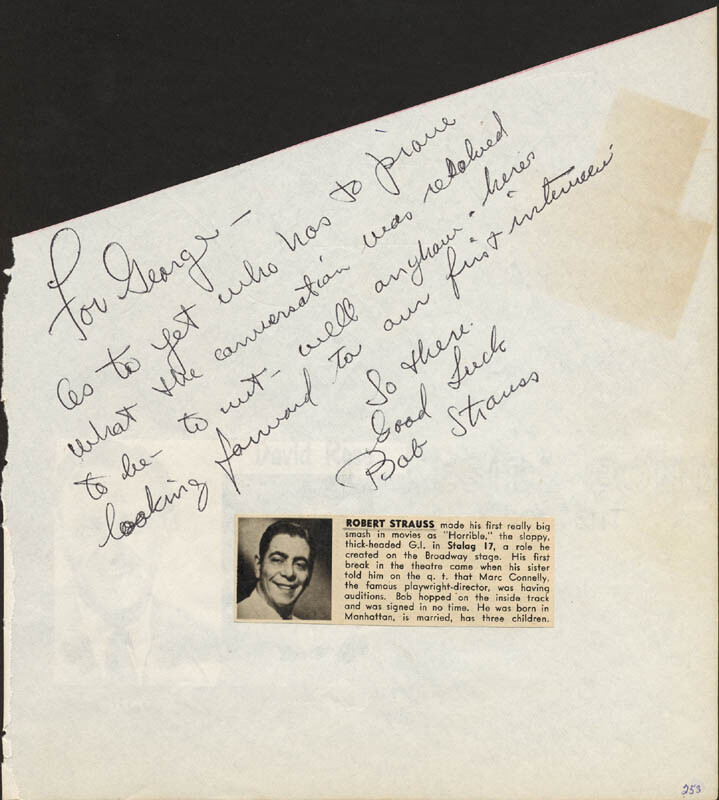 For George —
as to yet who has to
what the conversation was resolved
to be - to wit - well anyhow - heres
looking forward to our first interview
So there.
Good Luck
Bob Strauss
ROBERT STRAUSS made his first really big
smash in movies as "Horrible," the sloppy,
thick-headed G.I. in Stalag 17, a role he
created on the Broadway stage. His first
break in the theatre came when his sister
told him on the q. t. that Marc Connelly,
the famous playwright-director, was having
auditions. Bob hopped on the inside track
and was signed in no time. He was born in
Manhattan, is married, has three children.
David
253